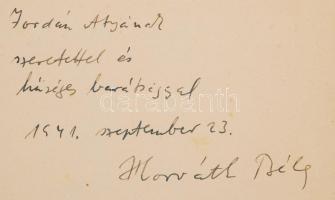 Jordán Atyának
szeretettel és
hűséges barátsággal
1941. szeptember 23.
Horváth Béla